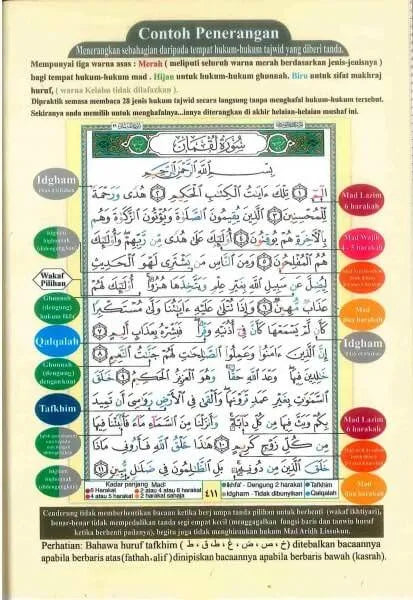 Contoh Penerangan
Menerangkan sebahagian daripada tempat hukum-hukum tajwid yang diberi tanda.
Mempunyai tiga warna asas : Merah ( meliputi seluruh warna merah berdasarkan jenis-jenisnya )
bagi tempat hukum-hukum mad . Hijau untuk hukum-hukum ghunnah. Biru untuk sifat makhraj
huruf, ( warna Kelabu tidak dilafazkan ).
Dipraktik semasa membaca 28 jenis hukum tajwid secara langsung tanpa menghafal hukum-hukum tersebut.
Sekiranya anda memilih untuk menghafalnya...ianya diterangkan di akhir helaian-helaian mushaf ini.
سُورَةُ لُقْمَان
بِسْمِ ٱللَّهِ ٱلرَّحْمَٰنِ ٱلرَّحِيمِ
الٓمٓ ١ تِلْكَ ءَايَٰتُ ٱلْكِتَٰبِ ٱلْحَكِيمِ ٢ هُدًى وَرَحْمَةً
لِّلْمُحْسِنِينَ ٣ ٱلَّذِينَ يُقِيمُونَ ٱلصَّلَوٰةَ وَيُؤْتُونَ ٱلزَّكَوٰةَ وَهُم
بِٱلْأٓخِرَةِ هُمْ يُوقِنُونَ ٤ أُو۟لَٰٓئِكَ عَلَىٰ هُدًى مِّن رَّبِّهِمْ وَأُو۟لَٰٓئِكَ
هُمُ ٱلْمُفْلِحُونَ ٥ وَمِنَ ٱلنَّاسِ مَن يَشْتَرِى لَهْوَ ٱلْحَدِيثِ
لِيُضِلَّ عَن سَبِيلِ ٱللَّهِ بِغَيْرِ عِلْمٍ وَيَتَّخِذَهَا هُزُوًا أُو۟لَٰٓئِكَ لَهُمْ
عَذَابٌ مُّهِينٌ ٦ وَإِذَا تُتْلَىٰ عَلَيْهِ ءَايَٰتُنَا وَلَّىٰ مُسْتَكْبِرًا
كَأَن لَّمْ يَسْمَعْهَا كَأَنَّ فِىٓ أُذُنَيْهِ وَقْرًا فَبَشِّرْهُ بِعَذَابٍ أَلِيمٍ ٧
إِنَّ ٱلَّذِينَ ءَامَنُوا۟ وَعَمِلُوا۟ ٱلصَّٰلِحَٰتِ لَهُمْ جَنَّٰتُ ٱلنَّعِيمِ ٨
خَٰلِدِينَ فِيهَا وَعْدَ ٱللَّهِ حَقًّا وَهُوَ ٱلْعَزِيزُ ٱلْحَكِيمُ ٩ خَلَقَ
ٱلسَّمَٰوَٰتِ بِغَيْرِ عَمَدٍ تَرَوْنَهَا وَأَلْقَىٰ فِى ٱلْأَرْضِ رَوَٰسِىَ أَن تَمِيدَ
بِكُمْ وَبَثَّ فِيهَا مِن كُلِّ دَآبَّةٍ وَأَنزَلْنَا مِنَ ٱلسَّمَآءِ مَآءً فَأَنۢبَتْنَا فِيهَا
مِن كُلِّ زَوْجٍ كَرِيمٍ ١٠ هَٰذَا خَلْقُ ٱللَّهِ فَأَرُونِى مَاذَا
خَلَقَ ٱلَّذِينَ مِن دُونِهِۦ بَلِ ٱلظَّٰلِمُونَ فِى ضَلَٰلٍ مُّبِينٍ ١١
Idgham
Idgham
bighunnah
Wakaf
Pilihan
Ghunnah
(dengung)
hukum ikhfa'
Qalqalah
Ghunnah
(dengung)
dengan kuat
Tafkhim
Idgham
bighunnah
Mad Lazim
6 harakah
Mad Wajib
4 - 5 harakah
Mad
Idgham
Mad Lazim
6 harakah
Mad
Kadar panjang Mad:
6 Harakat
2 atau 4 atau 6 harakat
Ikhfa' - Dengung 2 harakat
Tafkhim
4 atau 5 harakat
2 harakat sahaja
٤١١
Idgham - Tidak dibunyikan
Qalqalah
Cenderung tidak memberhentikan bacaan ketika berjumpa tanda pilihan untuk berhenti (wakaf ikhtiyari),
benar-benar tidak mempedulikan tanda segi empat kecil (menggagalkan fungsi baris dan tanwin huruf
ketika berhenti padanya), begitu juga tidak menghiraukan hukum Mad Aridh Lissukun.
Perhatian: Bahawa huruf tafkhim ( خ ، ص ، ض ، غ ، ط ، ق ، ظ ) ditebalkan bacaannya
apabila berbaris atas(fathah-alif) dinipiskan bacaannya apabila berbaris bawah (kasrah).